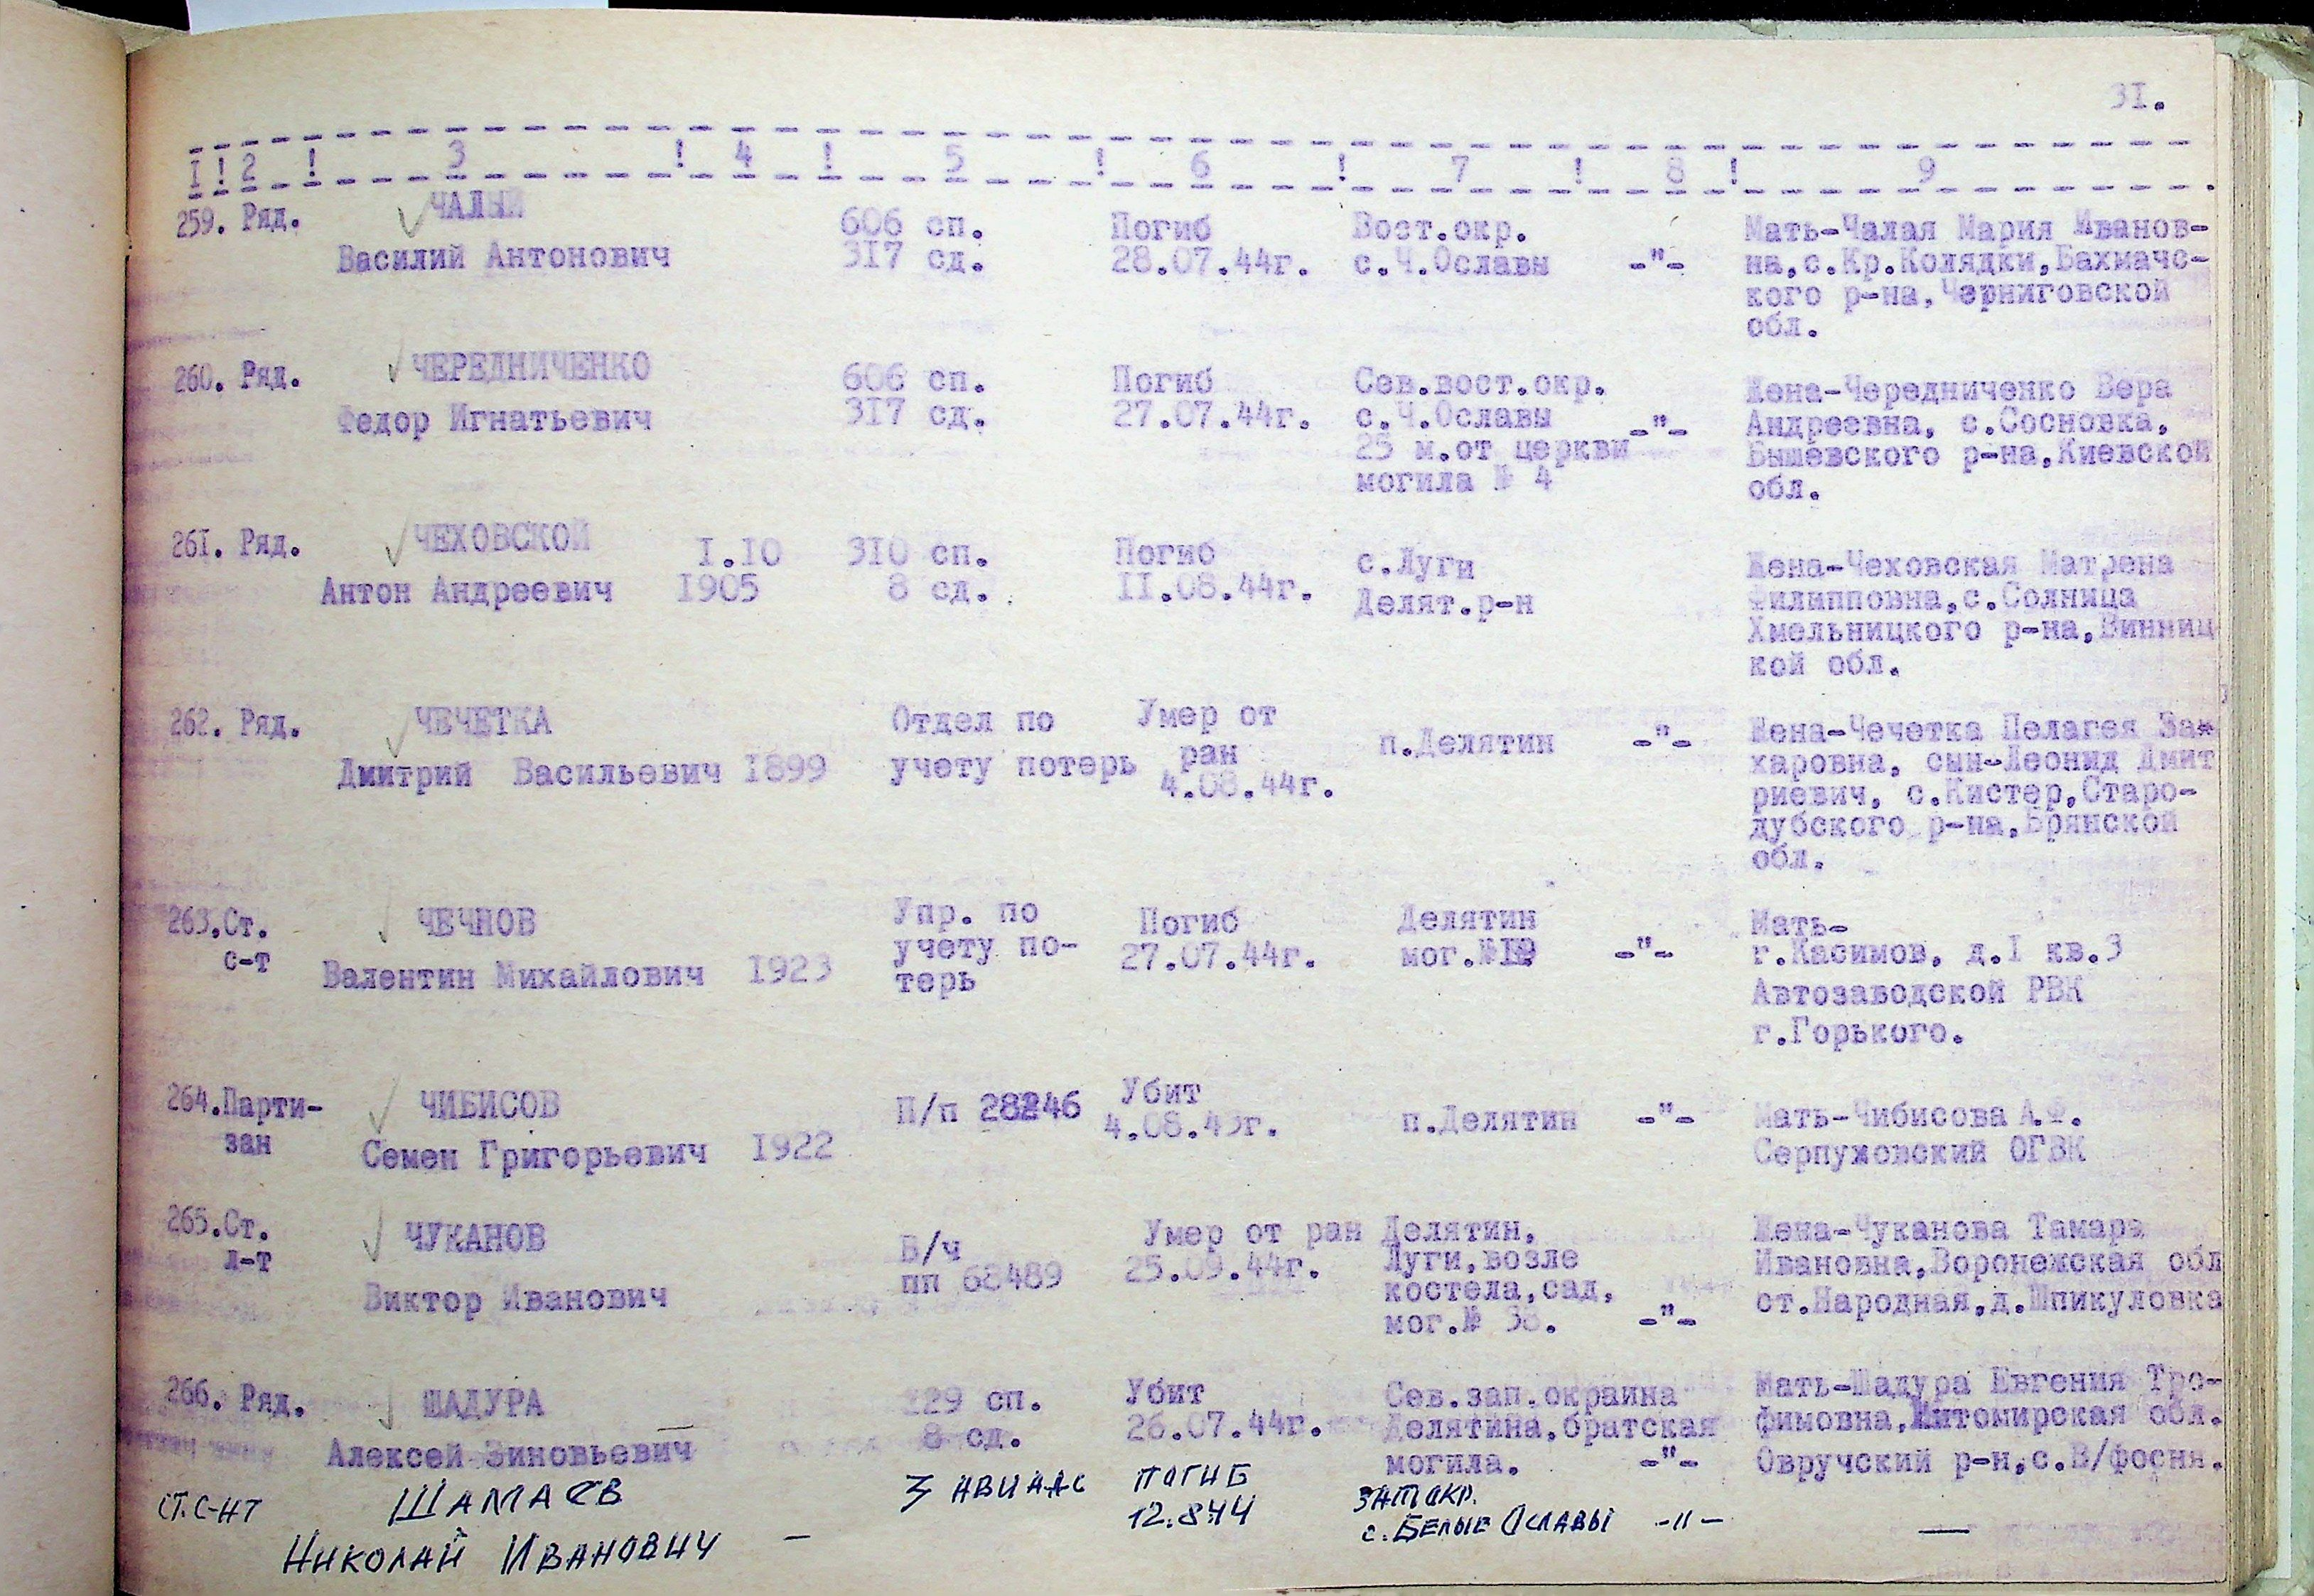 31.
I ! 2 ! 3 ! 4 ! 5 ! 6 ! 7 ! 8 ! 9
259. Ряд. ЧАЛЫЙ 606 сп. Погиб Вост.окр. Мать-Чалая Мария Иванов-
Василий Антонович 317 сд. 28.07.44г. с.Ч.Ославы -"- на,с.Кр.Колядки,Бахмачс-
кого р-на,Черниговской
обл.
260. Ряд. ЧЕРЕДНИЧЕНКО 606 сп. Погиб Сев.вост.окр. Жена-Чередниченко Вера
Федор Игнатьевич 317 сд. 27.07.44г. с.Ч.Ославы -"- Андреевна, с.Сосновка,
25 м.от церкви Бышевского р-на,Киевской
могила № 4 обл.
261. Ряд. ЧЕХОВСКОЙ I.IO 310 сп. Погиб с.Луги Жена-Чеховская Матрена
Антон Андреевич I905 8 сд. II.08.44г. Делят.р-н Филипповна,с.Солница
Хмельницкого р-на,Винниц
кой обл.
262. Ряд. ЧЕЧЕТКА Отдел по Умер от п.Делятин -"- Жена-Чечетка Пелагея За-
Дмитрий Васильевич I899 учету потерь ран харовна, сын-Леонид Дмит
4.08.44г. риевич, с.Кистер,Старо-
дубского р-на,Брянской
обл.
263.Ст. ЧЕЧНОВ Упр. по Погиб Делятин Мать-
с-т Валентин Михайлович I923 учету по- 27.07.44г. мог.№ -"- г.Касимов, д.I кв.3
терь Автозаводской РВК
г.Горького.
264.Парти- ЧИБИСОВ П/п 28246 Убит п.Делятин -"- Мать-Чибисова А.Ф.
зан Семен Григорьевич I922 4.08.43г. Серпуховский ОГВК
265.Ст. ЧУКАНОВ В/ч Умер от ран Делятин, Жена-Чуканова Тамара
л-т Виктор Иванович пп 68489 25.09.44г. Луги,возле Ивановна,Воронежская обл
костела,сад, ст.Народная,д.Шпикуловка
мог.№ 38. -"-
266. Ряд. ШАДУРА 229 сп. Убит Сев.зап.окраина Мать-Шадура Евгения Тро-
Алексей Зиновьевич 8 сд. 26.07.44г. Делятина,братская фимовна,Житомирская обл.
могила. -"- Овручский р-н,с.В/фосня.
СТ.С-НТ ШАМАЕВ 3 АВИАДС ПОГИБ ЗАП ОКР.
НИКОЛАЙ ИВАНОВИЧ - 12.8.44 с. БЕЛЫЕ ОСЛАВЫ -"- —